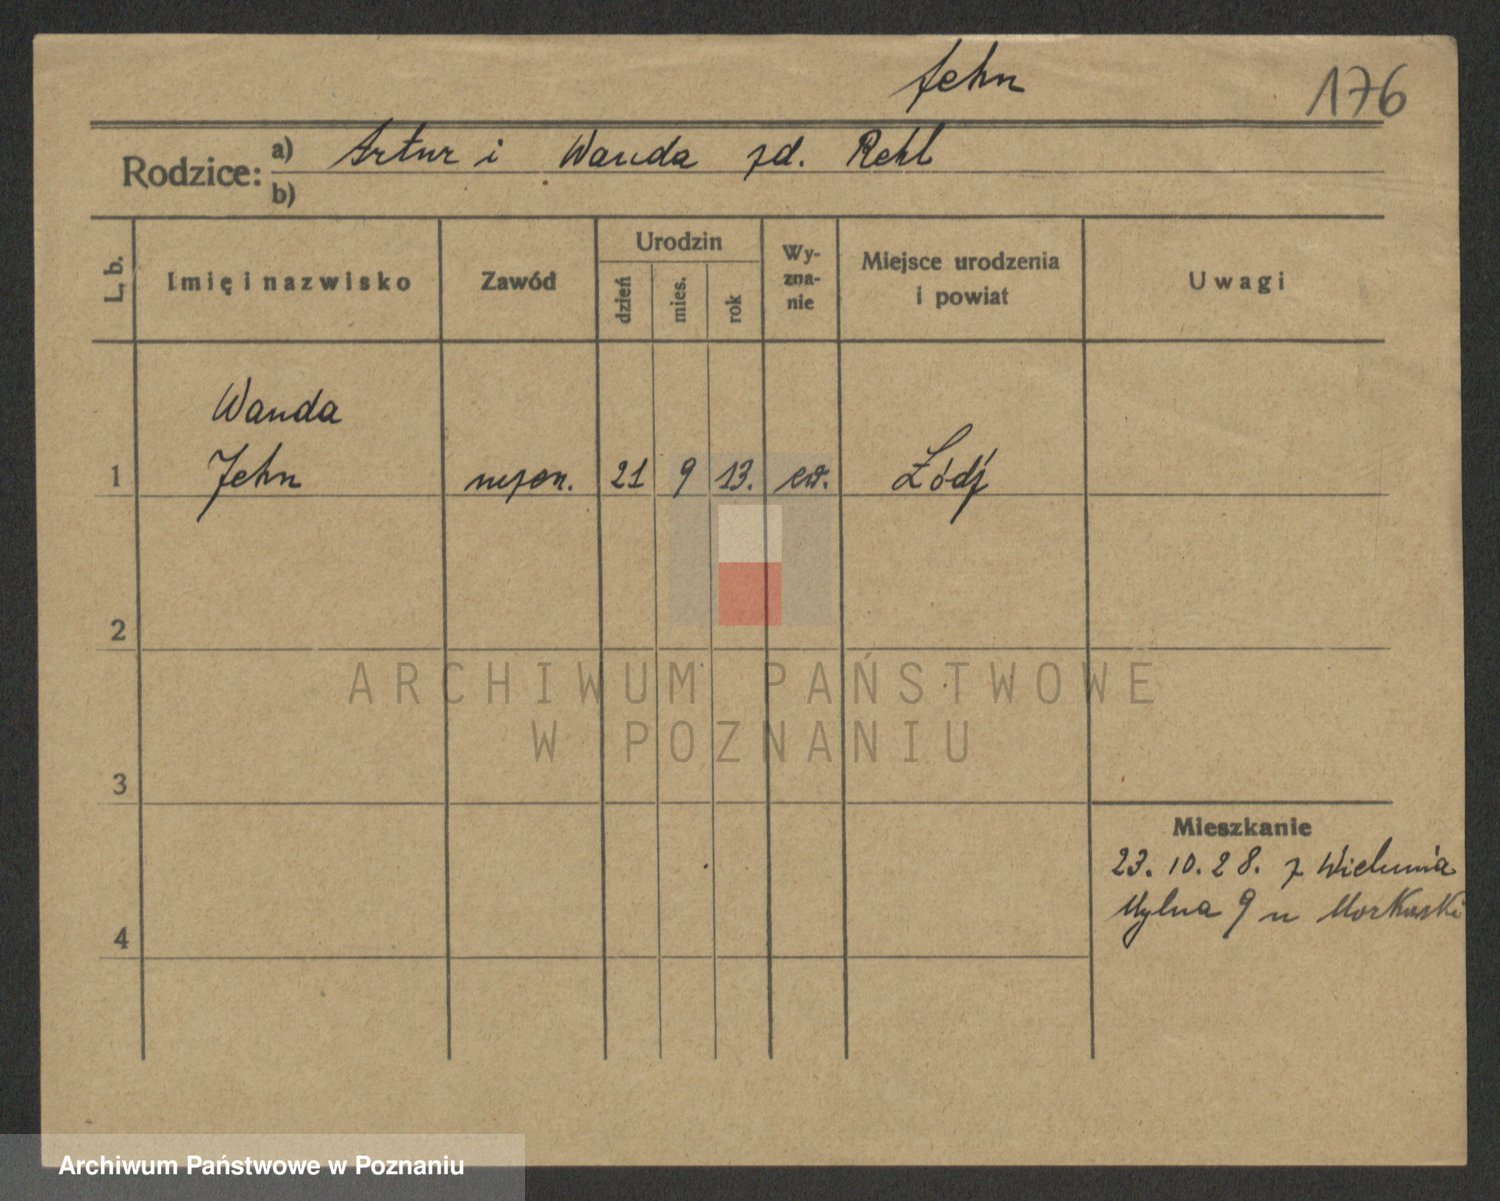 Jehn
176
Rodzice: a) Artur i Wanda zd. Rehl
b)
L. b. Imię i nazwisko Zawód Urodzin dzień mies. rok Wy-zna-nie Miejsce urodzenia i powiat Uwagi
Wanda
1 Jehn 21 9 13. ew. Łódź
2
3
4
Mieszkanie
23. 10. 28. z Wielunia
Mylna 9 u
ARCHIWUM PAŃSTWOWE
W POZNANIU
Archiwum Państwowe w Poznaniu